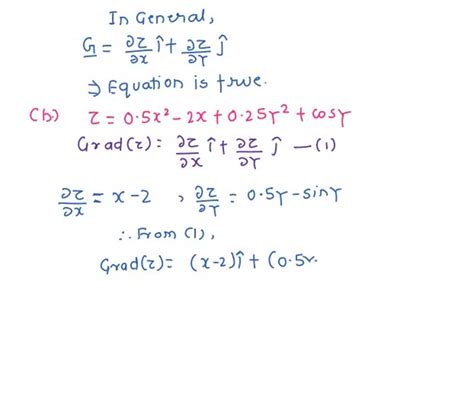 In General,
G = ∂z/∂x î + ∂z/∂Y ĵ
⇒ Equation is true.
(b.) z = 0.5x² - 2x + 0.25Y² + cosY
Grad(z) = ∂z/∂x î + ∂z/∂Y ĵ —(1)
∂z/∂x = x - 2 , ∂z/∂Y = 0.5Y - sinY
∴ From (1),
Grad(z) = (x-2) î + (0.5Y.